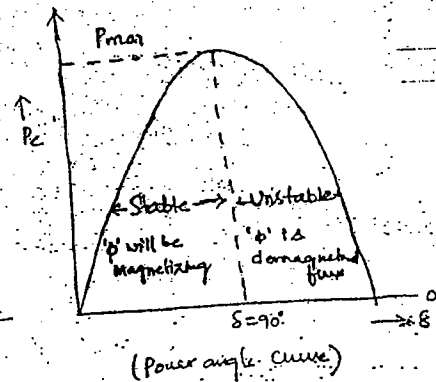 Pmax
↑
Pe
←Stable→
←Unstable
'φ' will be
magnetizing
'φ' is
demagnetized
flux
δ=90°
→δ
(Power angle curve)